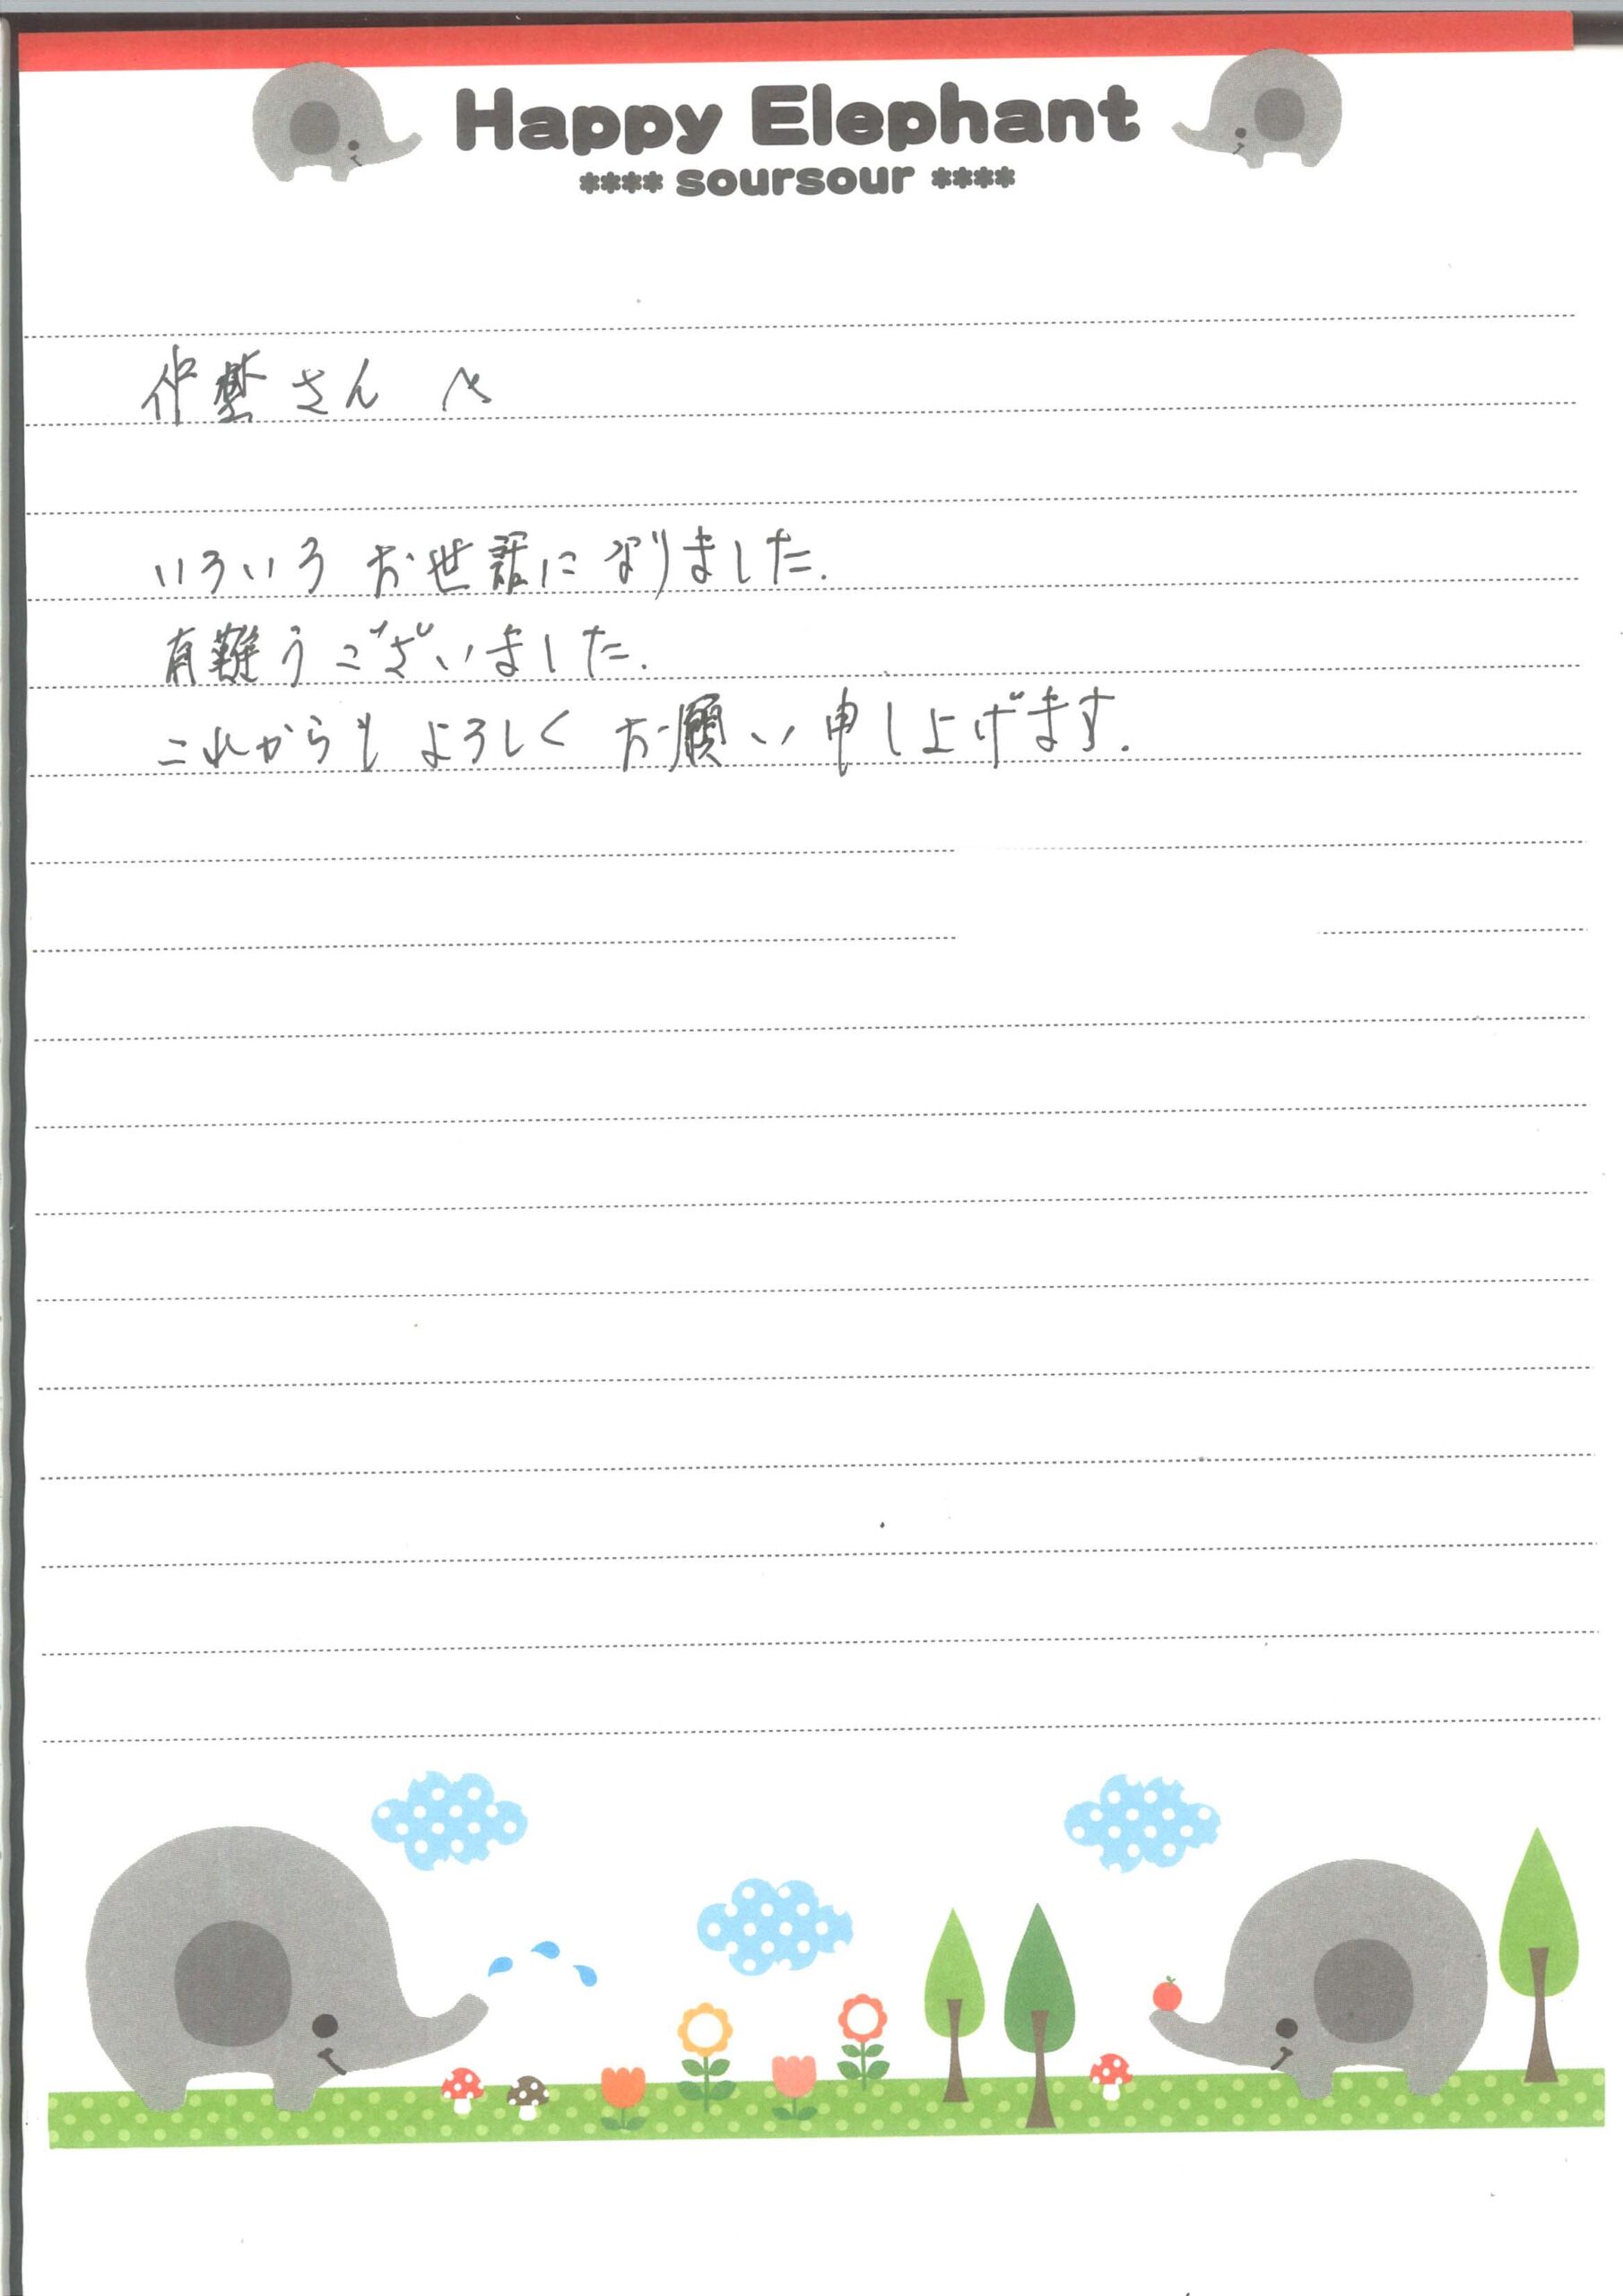 Happy Elephant
**** soursour ****
さんへ
いろいろ お世話に なりました.
有難う ございました.
これからも よろしく お願い 申し上げます.